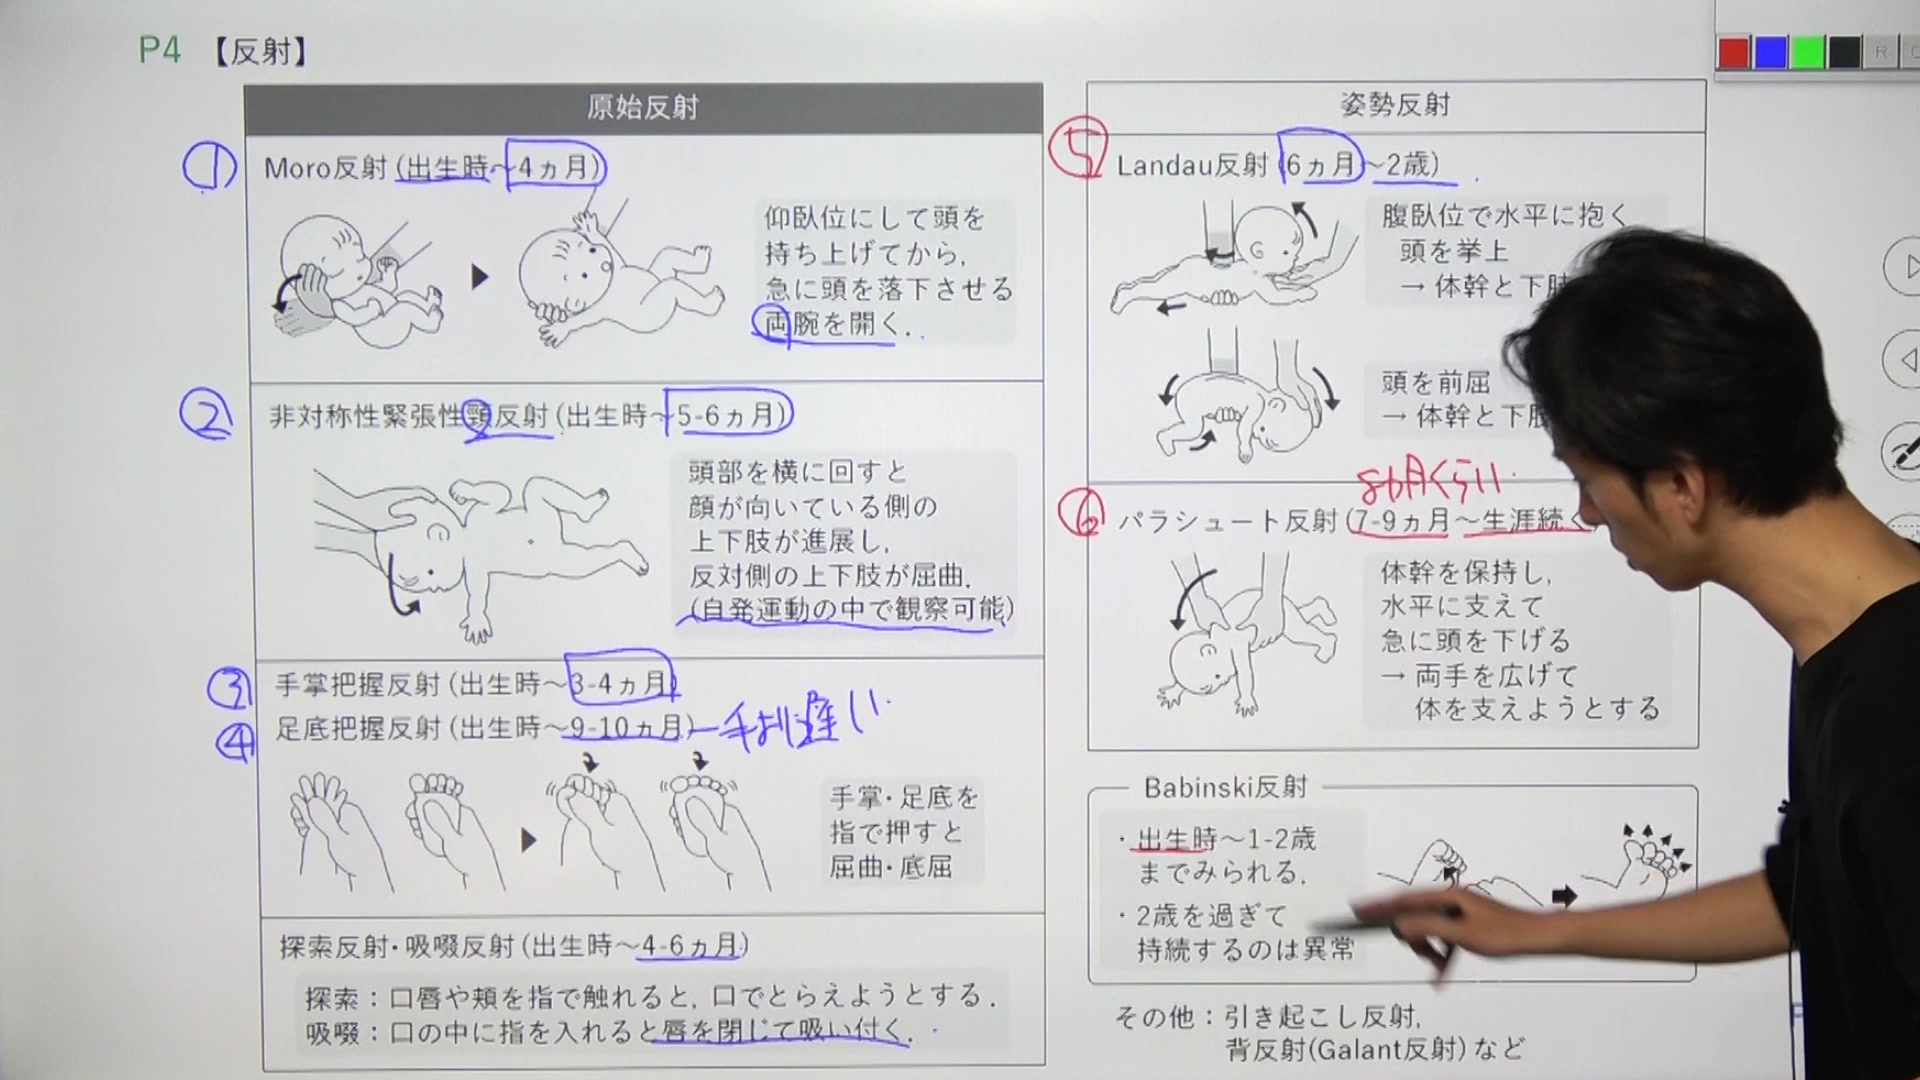 P4 【反射】
原始反射
① Moro反射 (出生時~4ヵ月)
仰臥位にして頭を
持ち上げてから,
急に頭を落下させる
両腕を開く.
② 非対称性緊張性頸反射 (出生時~5-6ヵ月)
頭部を横に回すと
顔が向いている側の
上下肢が進展し,
反対側の上下肢が屈曲.
(自発運動の中で観察可能)
③ 手掌把握反射 (出生時~3-4ヵ月)
④ 足底把握反射 (出生時~9-10ヵ月) 手より遅い
手掌・足底を
指で押すと
屈曲・底屈
探索反射・吸啜反射 (出生時~4-6ヵ月)
探索:口唇や頬を指で触れると, 口でとらえようとする.
吸啜:口の中に指を入れると唇を閉じて吸い付く.
姿勢反射
⑤ Landau反射 (6ヵ月~2歳)
腹臥位で水平に抱く
頭を挙上
→ 体幹と下肢
頭を前屈
→ 体幹と下肢
8ヵ月くらい
⑥ パラシュート反射 (7-9ヵ月~生涯続く
体幹を保持し,
水平に支えて
急に頭を下げる
→ 両手を広げて
体を支えようとする
Babinski反射
・出生時~1-2歳
までみられる.
・2歳を過ぎて
持続するのは異常
その他:引き起こし反射,
背反射(Galant反射) など
R